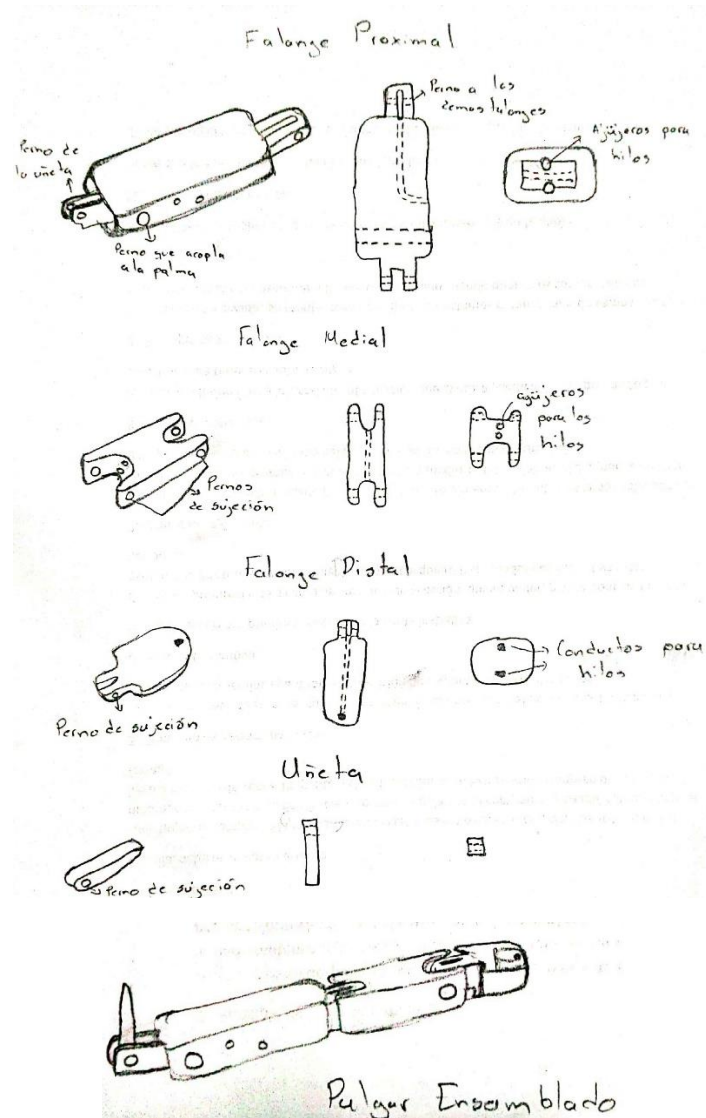 Falange Proximal
Perno de
la uñeta
Perno que acopla
a la palma
Perno a los
demas falanges
Agüjeros para
hilos
Falange Medial
Pernos
de sujeción
agüjeros
para los
hilos
Falange Distal
Perno de sujeción
Conductos para
hilos
Uñeta
Perno de sujeción
Pulgar Ensamblado